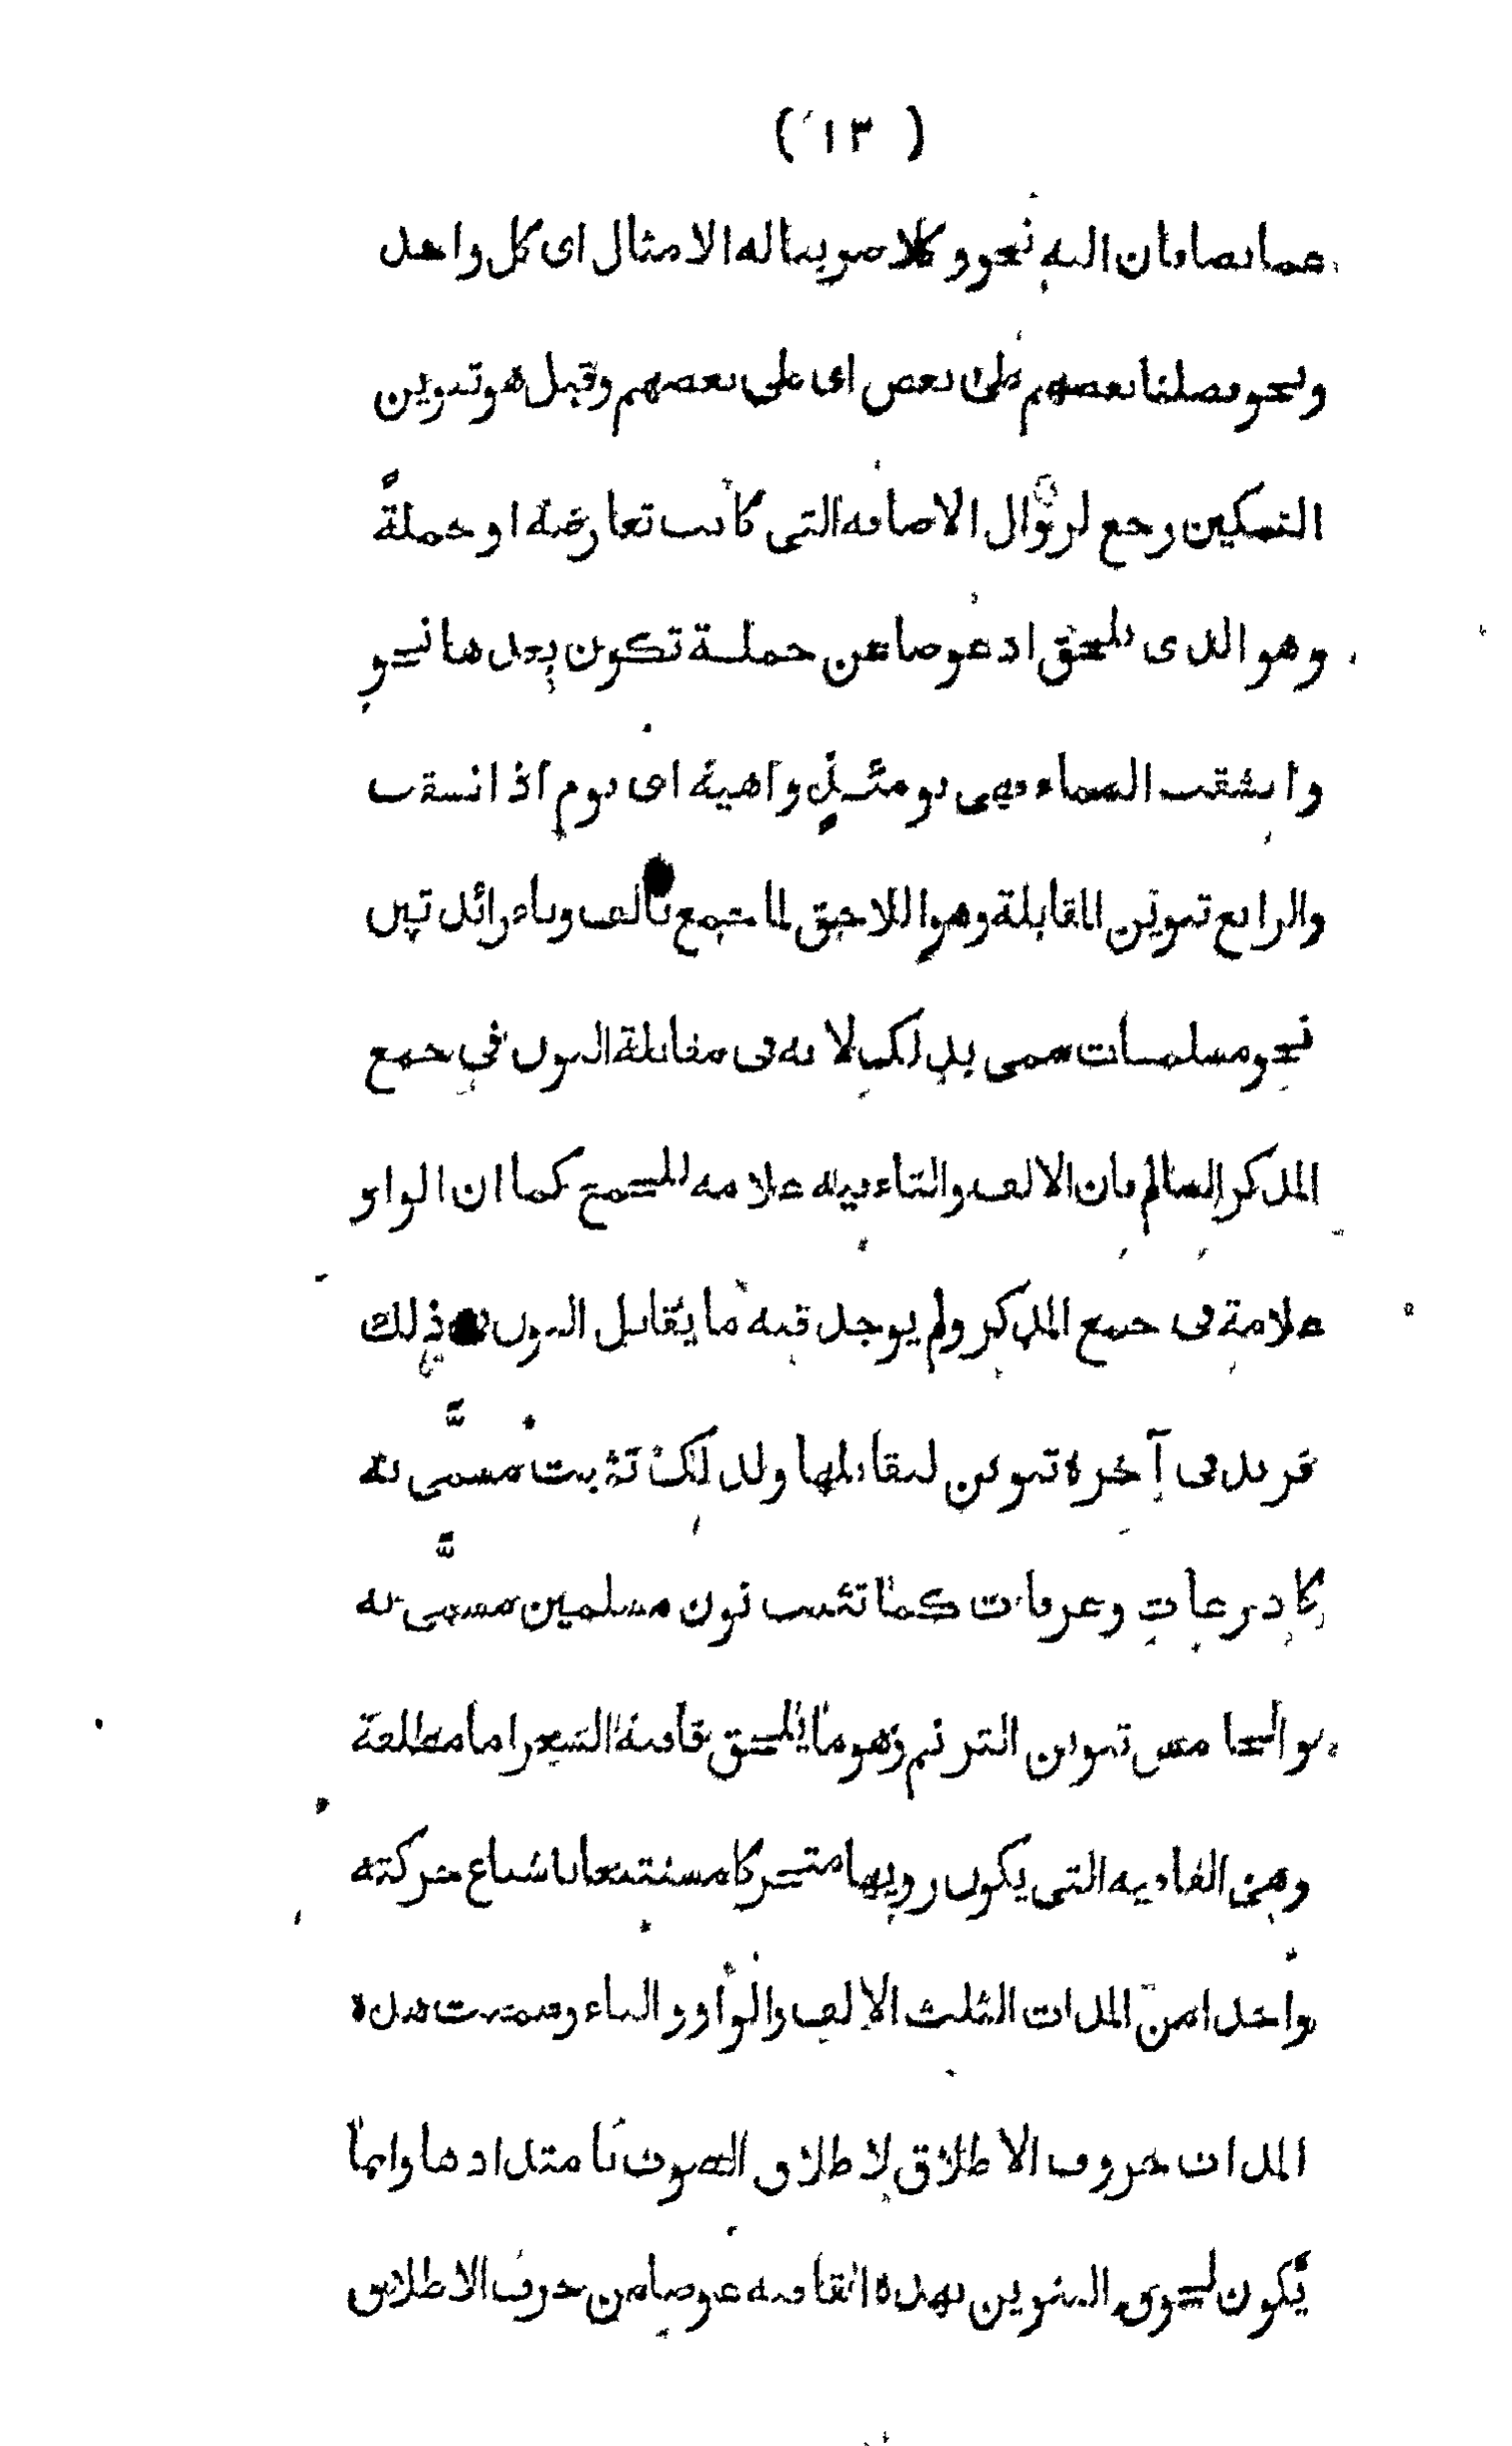 ( ١٣ )
عما يضافان اليه نحو و كلا ضربنا له الامثال اى كل واحد
ونحو فضلنا بعضهم على بعض اى على بعضهم وقيل هو تنوين
التمكين رجع لزوال الاضافة التى كانت تعارضه او جملةً
وهو الذى يلحق اذ عوضا عن جملة تكون بعدها نحو
وانشقت السماء فهى يومئذٍ واهية اى يوم اذ انشقت
والرابع تنوين المقابلة وهو اللاحق لما جمع بالف وتاء زائدتين
نحو مسلمات سمى بذلك لانه فى مقابلة النون فى جمع
المذكر السالم فان الالف والتاء فيه علامه للجمع كما ان الواو
علامة فى جمع المذكر ولم يوجد فيه ما يقابل النون فى ذلك
فزيد فى آخره تنوين ليقابلها ولذلك تثبت مسمَّى به
كاذرعاتٍ وعرفات كما تثبت نون مسلمين مسمَّى به
والخامس تنوين الترنم وهو ما يلحق قافية الشعر اما مطلقة
وهى القافيه التى يكون رويها متحركا مستتبعا باشباع حركته
واحدا من المدات الثلث الالف والواو والياء وسميت هذه
المدات حروف الاطلاق لاطلاق الصوت بامتدادها وانما
يكون لحوق التنوين بهذه القافيه عوضا من حرف الاطلاق